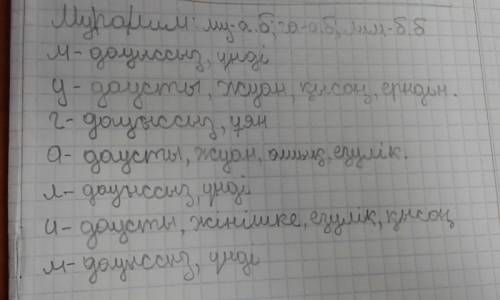 Мұғалим: мұ-а.б; ға-а.б; лим-б.б
м- дауыссыз, үнді
ұ- даусты, жуан, қысаң, еріндік.
ғ- дауыссыз, ұяң
а- даусты, жуан, ашық, езулік.
л- дауыссыз, үнді
и- даусты, жіңішке, езулік, қысаң
м- дауыссыз, үнді